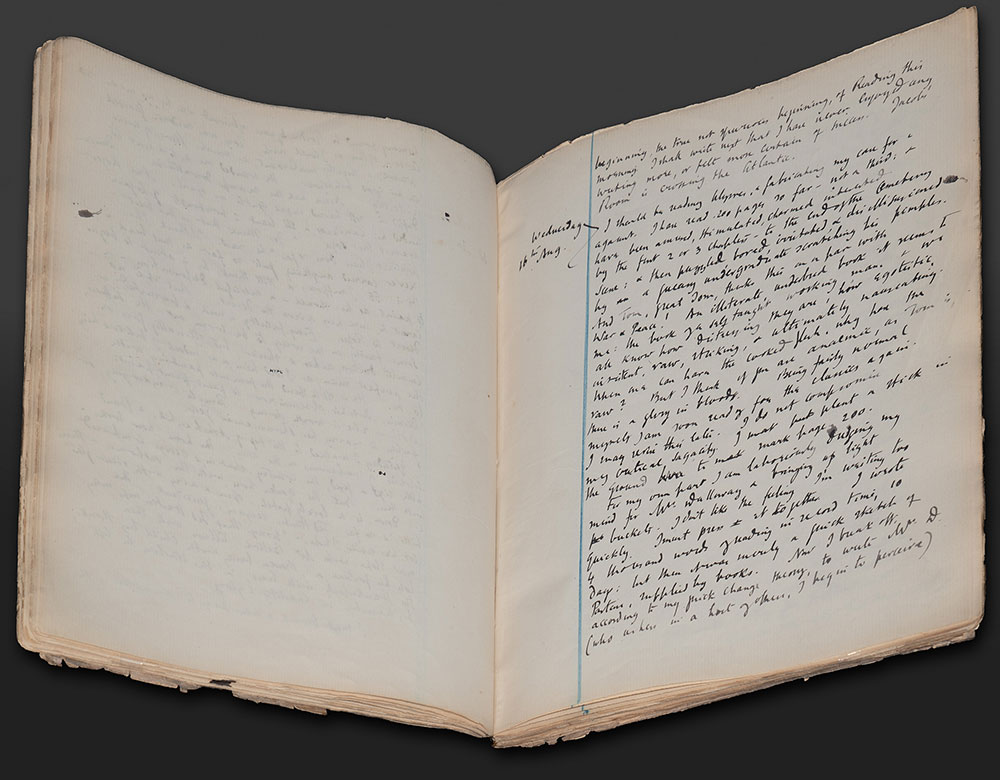 beginning, the true not spurious beginning, of Reading this
morning. I shall write next that I have never enjoyed any
writing more, or felt more certain of success. Jacob's
Room is crossing the Atlantic.
Wednesday
16th Aug.
I should be reading Ulysses, & fabricating my case for &
against. I have read 200 pages so far – not a third; &
have been amused, stimulated charmed interested
by the first 2 or 3 chapters – to the end of the Cemetery
scene; & then puzzled, bored, irritated, & disillusioned
by a queasy undergraduate scratching his pimples.
And Tom, great Tom, thinks this on a par with
War & Peace! An illiterate underbred book it seems to
me: the book of a self taught working man, & we
all know how distressing they are, how egotistic,
insistent, raw, striking, & ultimately nauseating.
When one can have the cooked flesh, why have the
raw? But I think if you are anaemic, as Tom is,
there is a glory in blood. Being fairly normal
myself I am soon ready for the classics again.
I may revise this later. I do not compromise
my critical sagacity. I must put plant a stick in
the ground to mark page 200.
For my own part I am laboriously dredging my
mind for Mrs. Dalloway & bringing up light
buckets. I don't like the feeling I'm writing too
quickly. I must press it together. I wrote
4 thousand words of reading in record time, 10
days: but then it was merely a quick sketch of
Pastons, supplied by books. Now I break off,
according to my quick change theory, to write Mrs. D.
(who ushers in a host of others, I begin to perceive)